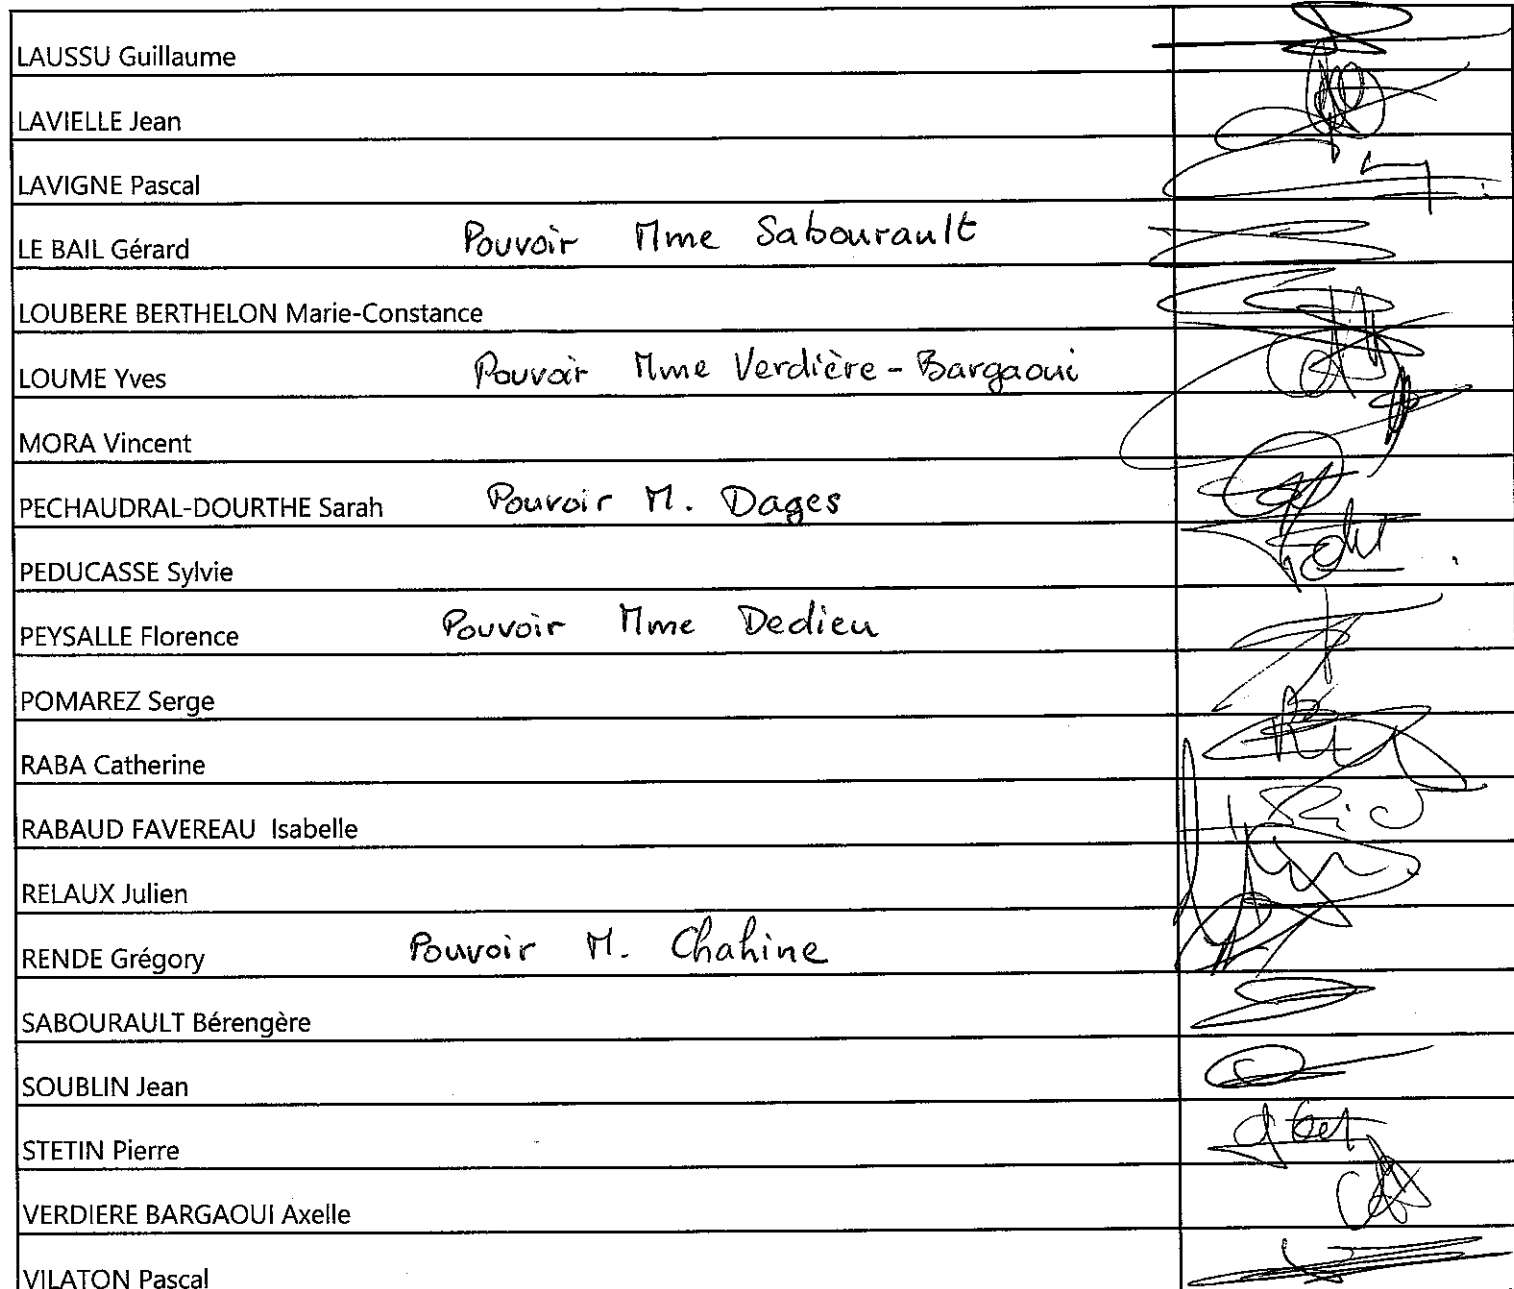 LAUSSU Guillaume
LAVIELLE Jean
LAVIGNE Pascal
LE BAIL Gérard Pouvoir Mme Sabourault
LOUBERE BERTHELON Marie-Constance
LOUME Yves Pouvoir Mme Verdière-Bargaoui
MORA Vincent
PECHAUDRAL-DOURTHE Sarah Pouvoir M. Dages
PEDUCASSE Sylvie
PEYSALLE Florence Pouvoir Mme Dedieu
POMAREZ Serge
RABA Catherine
RABAUD FAVEREAU Isabelle
RELAUX Julien
RENDE Grégory Pouvoir M. Chahine
SABOURAULT Bérengère
SOUBLIN Jean
STETIN Pierre
VERDIERE BARGAOUI Axelle
VILATON Pascal